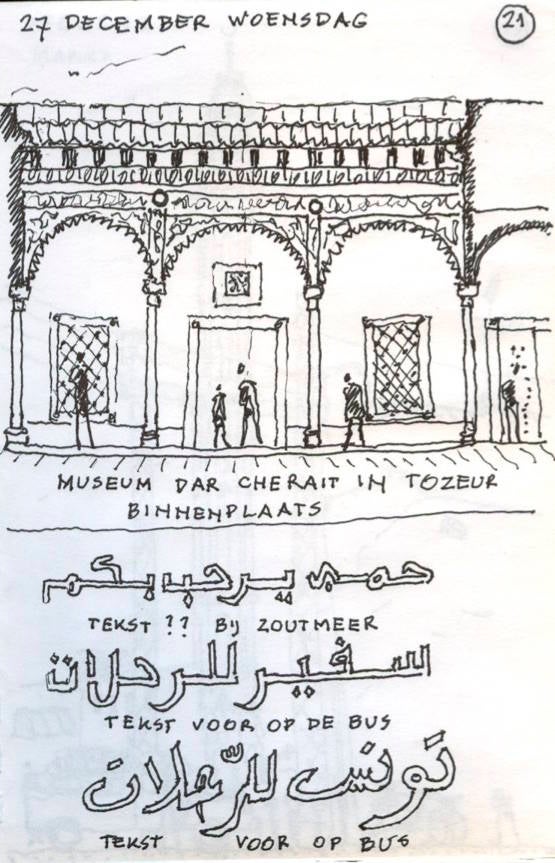 27 DECEMBER WOENSDAG 21
MUSEUM DAR CHERAIT IN TOZEUR
BINNENPLAATS
يرحب بكم
TEKST ?? BIJ ZOUTMEER
السفير للرحلات
TEKST VOOR OP DE BUS
تونس للرّحلات
TEKST VOOR OP BUS